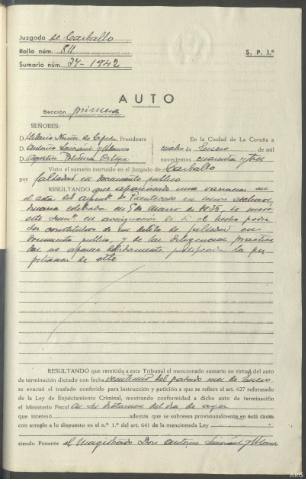 Juzgado de Carballo
Rollo núm. 811
Sumario núm. 27-1942
S. P. 1.ª
AUTO
Sección primera
SEÑORES:
D. Presidente
D. Antonio
D.
En la Ciudad de La Coruña a
de Enero de mil
novecientos cuarenta y tres
Visto el sumario instruido en el Juzgado de Carballo
por falsedad en documento público
RESULTANDO que apareciendo una variación en
el acta del de Puenteceso en
celebrada en 5 de Marzo de 1935, se
este en averiguación de si el hecho podía
ser constitutivo de un delito de falsedad en
documento público, y de las diligencias practica-
das no aparece debidamente justificada la per-
petración de
RESULTANDO que remitido a este Tribunal el mencionado sumario en virtud del auto
de terminación dictado con fecha del pasado mes de Enero
se evacuó el traslado conferido para instrucción y petición a que se refiere el art. 627 reformado
de la Ley de Enjuiciamiento Criminal, mostrando conformidad a dicho auto de terminación
el Ministerio Fiscal en su dictamen del día de ayer
que interesó además que se sobresea provisionalmente en esta causa
con arreglo a lo dispuesto en el n.º 1.º del art. 641 de la mencionada Ley
siendo Ponente el Magistrado Don Antonio